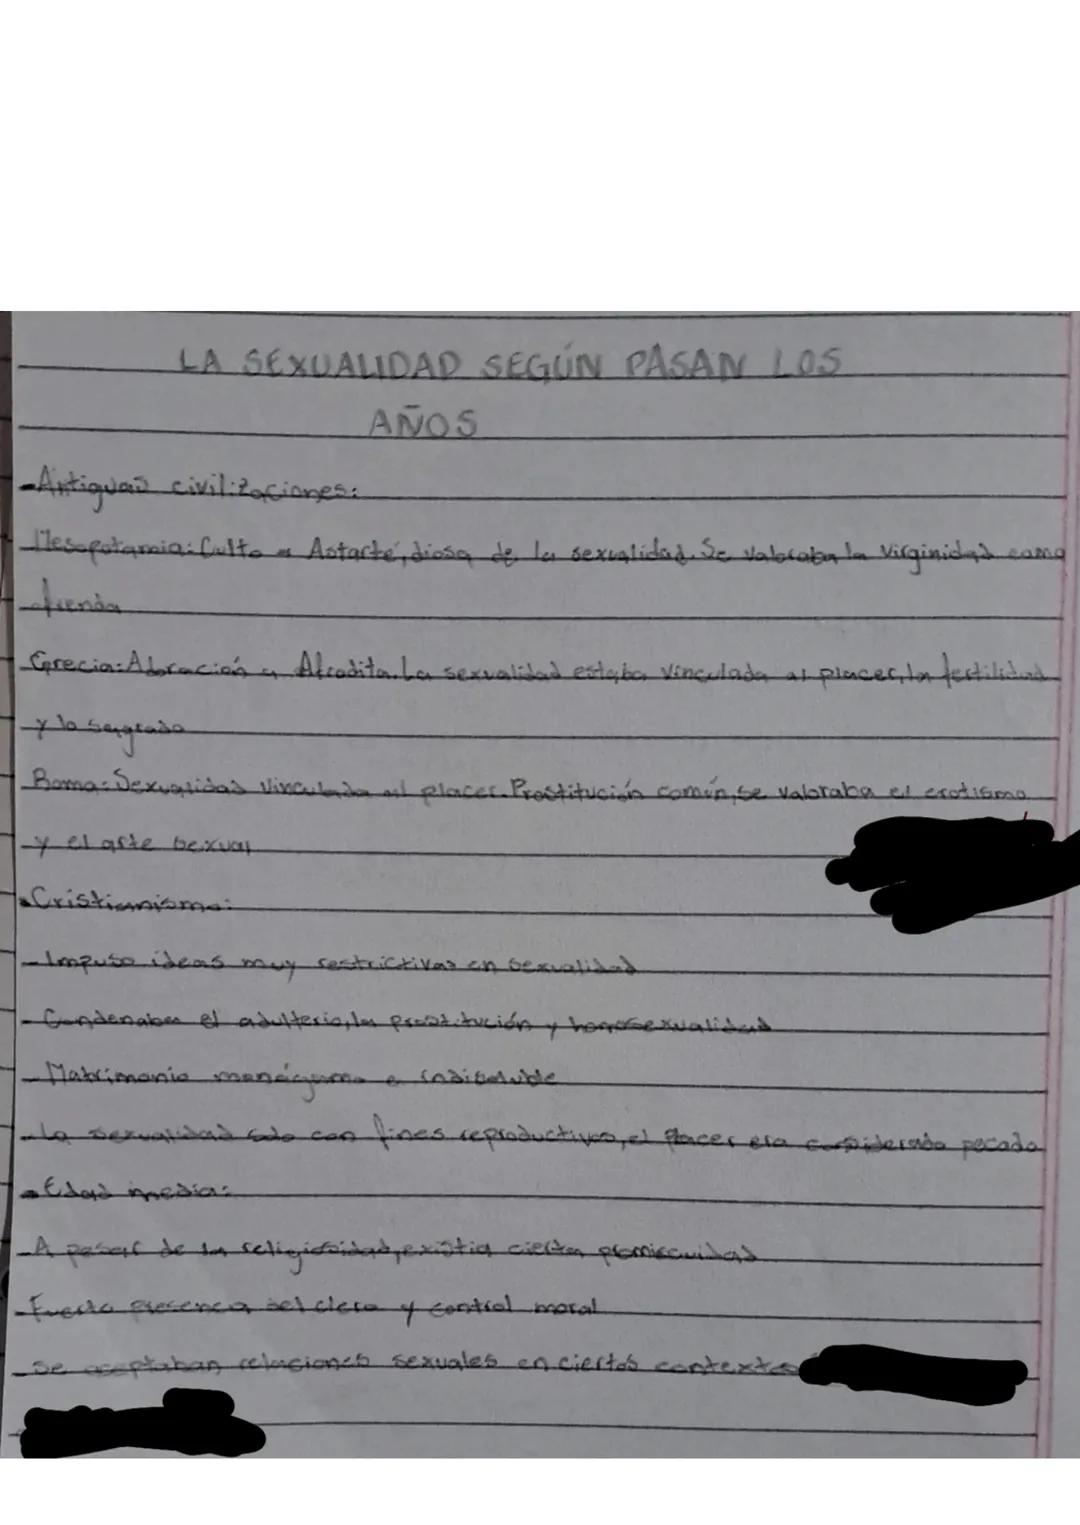 LA SEXUALIDAD SEGÚN PASAN LOS
AÑOS
-Antiguas civilizaciones:
Mesopotamia: Culto a Astarté, diosa de la sexualidad. Se valoraba la virginidad como
ofrenda
Grecia: Adoración a Afrodita. La sexualidad estaba vinculada al placer, la fertilidad
y lo sagrado
Roma: Sexualidad vinculada al placer. Prostitución común, se valoraba el erotismo
y el arte sexual
•Cristianismo:
-Impuso ideas muy restrictivas en sexualidad
-Condenaba el adulterio, la prostitución y homosexualidad
-Matrimonio monógamo e indisoluble
-La sexualidad solo con fines reproductivos, el placer era considerado pecado
•Edad media:
-A pesar de la religiosidad, existia cierta promiscuidad
-Fuerte presencia del clero y control moral
-Se aceptaban relaciones sexuales en ciertos contextos